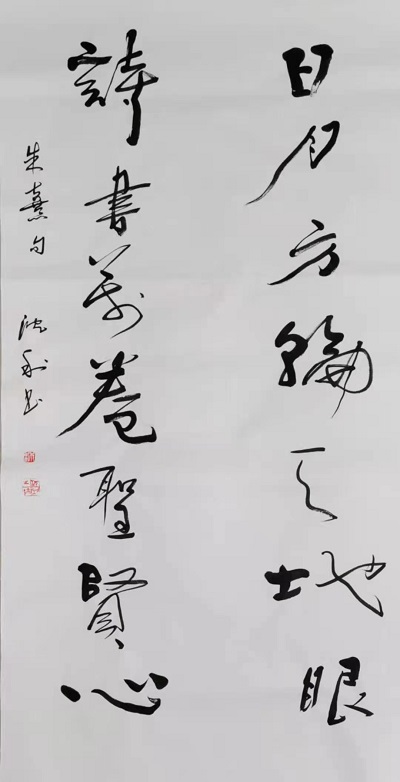 日月方輪天地眼
詩書萬卷聖賢心
朱熹句